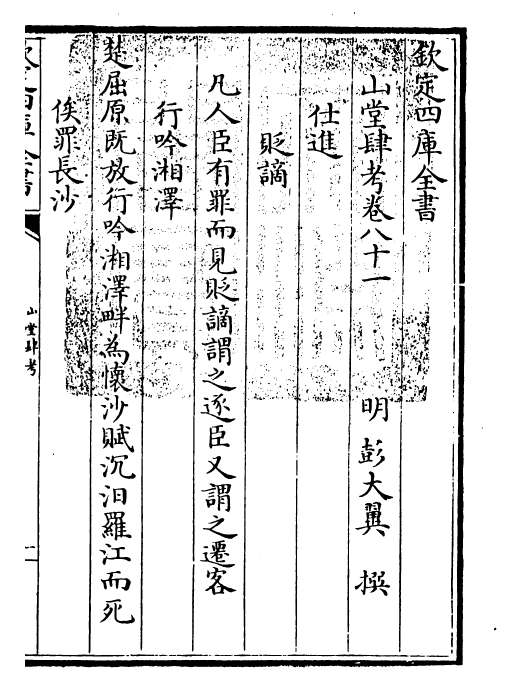 欽定四庫全書
山堂肆考卷八十一
明 彭大翼 撰
仕進
貶謫
凡人臣有罪而見貶謫謂之逐臣又謂之遷客
行吟湘澤
楚屈原既放行吟湘澤畔為懷沙賦沉汨羅江而死
俟罪長沙
山堂肆考
一